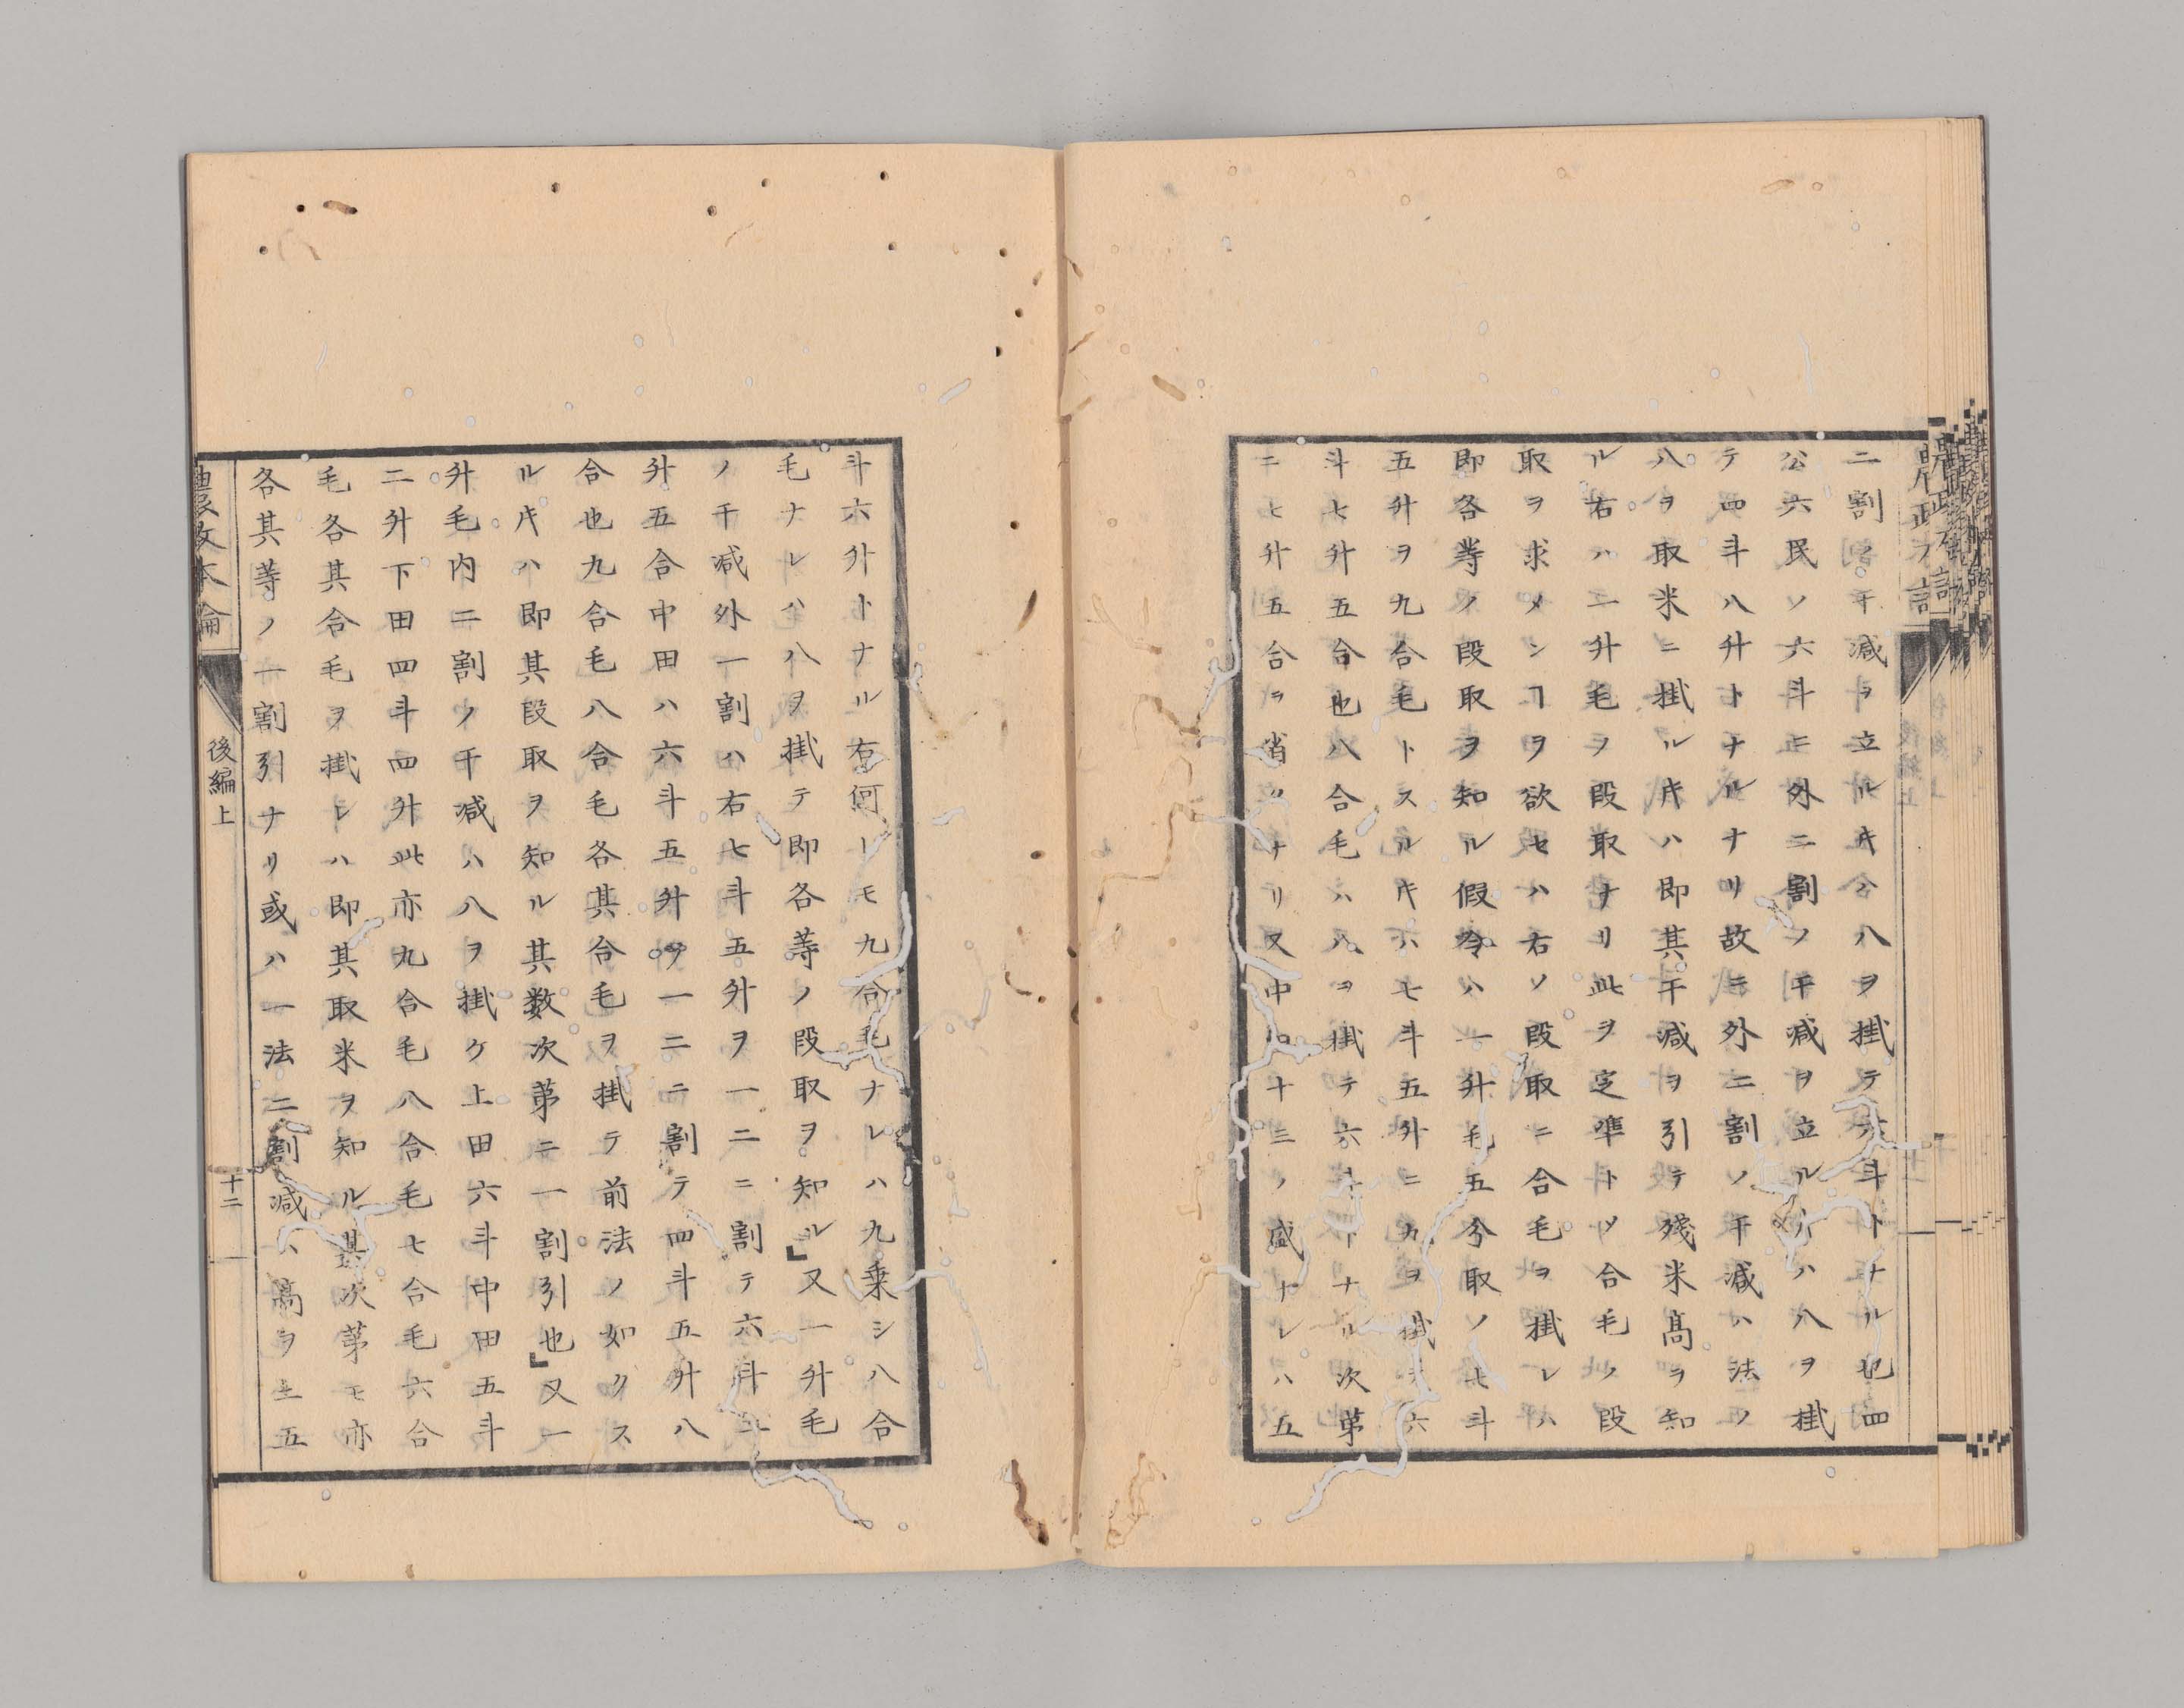 二割ノ干減ヲ立ル𪜈ハ八ヲ掛テ六斗トナル也四
公六民ソ六斗ニ外二割ノ干減ヲ立ル𪜈ハ八ヲ掛
テ四斗八升トナルナリ故ニ外二割ノ干減ハ法ノ
八ヲ取米ニ掛ル𪜈ハ即其干減ヲ引テ殘米髙ヲ知
ル右ハ一升毛ヲ段取ナリ此ヲ定凖トソ合毛ノ段
取ヲ求メンヿヲ欲セハ右ソ段取ニ合毛ヲ掛レハ
即各䓁ノ段取ヲ知ル假令ハ一升毛五分取ノ七斗
五升ヲ九合毛トスル𪜈ハ七斗五升ニ九ヲ掛テ六
斗七升五合也八合毛ハ八ヲ掛テ六斗トナル次第
ニ七升五合ヲ省クナリ又中田十三ノ盛ナレハ五
斗六升トナル右何レモ九合毛ナレハ九乗シ八合
毛ナレハ八ヲ掛テ即各䓁ノ段取ヲ知ル」又一升毛
ノ干減外一割ハ右七斗五升ヲ一二ニ割テ六斗二
升五合中田ハ六斗五升ヲ一二ニ割テ四斗五升八
合也九合毛八合毛各其合毛ヲ掛テ前法ノ如クス
ル𪜈ハ即其段取ヲ知ル其数次第ニ一割引也」又一
升毛内二割ノ干減ハ八ヲ掛ケ上田六斗中田五斗
二升下田四斗四升此亦九合毛八合毛七合毛六合
毛各其合毛ヲ掛レハ即其取米ヲ知ル其次第モ亦
各其䓁ノ一割引ナリ或ハ一法二割減ハ髙ヲ土五
後編上
十二